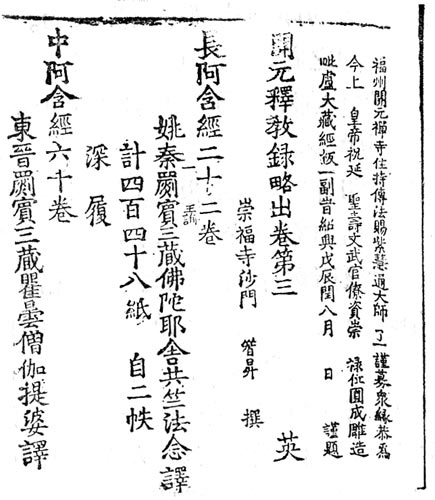 福州開元禪寺住持傳法賜紫慧通大師了一謹募衆緣恭為
今上皇帝祝延聖壽文武官僚資崇祿位圓成雕造
毗盧大藏經板一副昔紹興戊辰閏八月日謹題
開元釋教録略出卷第三英
崇福寺沙門智昇撰
長阿含經二十二卷
姚秦罽賓三藏佛陀耶舍共竺法念譯
計四百四十八紙自二帙
深履
中阿含經六十卷
東晉罽賓三藏瞿曇僧伽提婆譯